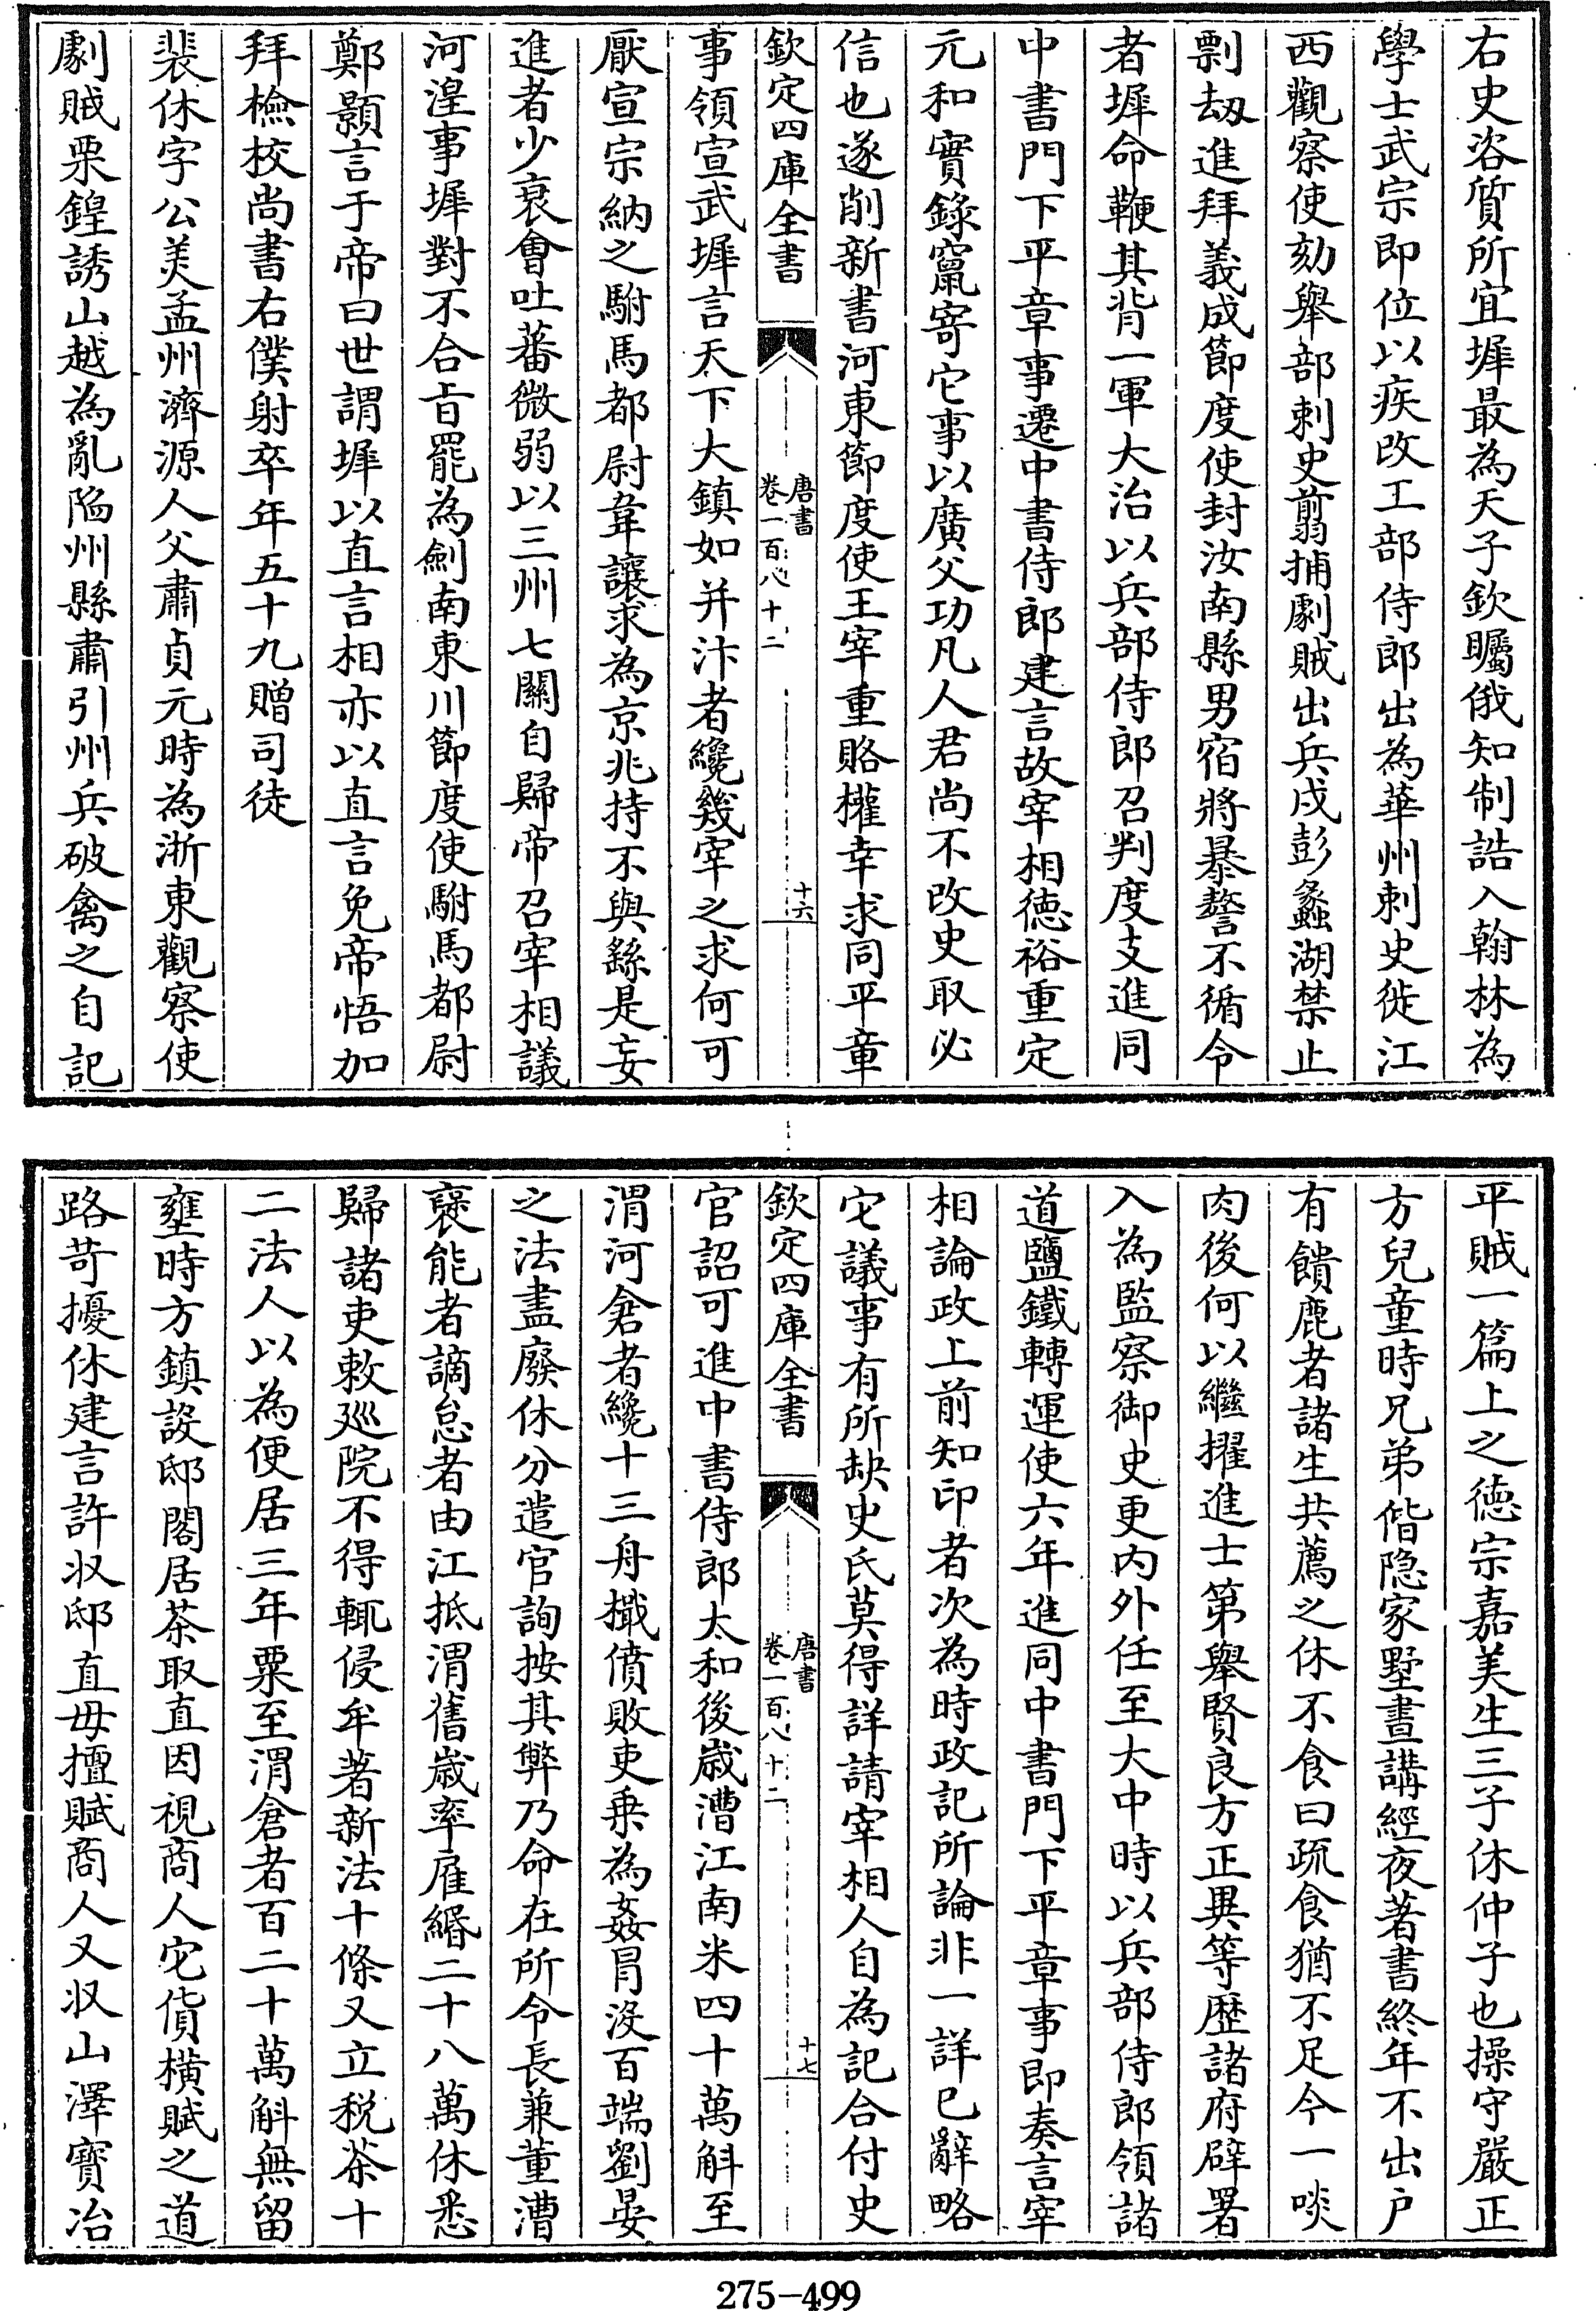 右史咨質所宜墀最為天子欽矚俄知制誥入翰林為
學士武宗即位以疾改工部侍郎出為華州刺史徙江
西觀察使劾舉部刺史翦捕劇賊出兵戍彭蠡湖禁止
剽劫進拜義成節度使封汝南縣男宿將暴驁不循令
者墀命鞭其背一軍大治以兵部侍郎召判度支進同
中書門下平章事遷中書侍郎建言故宰相徳裕重定
元和實錄竄寄它事以廣父功凡人君尚不改史取必
信也遂削新書河東節度使王宰重賂權幸求同平章
欽定四庫全書
唐書
卷一百八十二
十六
事領宣武墀言天下大鎮如并汴者纔幾宰之求何可
厭宣宗納之駙馬都尉韋讓求為京兆持不與繇是妄
進者少衰會吐蕃微弱以三州七關自歸帝召宰相議
河湟事墀對不合㫖罷為劍南東川節度使駙馬都尉
鄭顥言于帝曰世謂墀以直言相亦以直言免帝悟加
拜檢校尚書右僕射卒年五十九贈司徒
裴休字公美孟州濟源人父肅貞元時為浙東觀察使
劇賊栗鍠誘山越為亂陷州縣肅引州兵破禽之自記
平賊一篇上之徳宗嘉美生三子休仲子也操守嚴正
方兒童時兄弟偕隐家墅晝講經夜著書終年不出户
有饋鹿者諸生共薦之休不食曰疏食猶不足今一啖
肉後何以繼擢進士第舉賢良方正異等歴諸府辟署
入為監察御史更内外任至大中時以兵部侍郎領諸
道鹽鐵轉運使六年進同中書門下平章事即奏言宰
相論政上前知印者次為時政記所論非一詳已辭略
它議事有所缺史氏莫得詳請宰相人自為記合付史
欽定四庫全書
唐書
卷一百八十二
十七
官詔可進中書侍郎太和後嵗漕江南米四十萬斛至
渭河倉者纔十三舟檝僨敗吏乗為姦冒沒百端劉晏
之法盡廢休分遣官詢按其弊乃命在所令長兼董漕
襃能者謫怠者由江抵渭舊嵗率雇緡二十八萬休悉
歸諸吏敕廵院不得輒侵牟著新法十條又立税茶十
二法人以為便居三年粟至渭倉者百二十萬斛無留
壅時方鎮設邸閣居茶取直因視商人它貨橫賦之道
路苛擾休建言許収邸直毋擅賦商人又収山澤寳冶
275-499